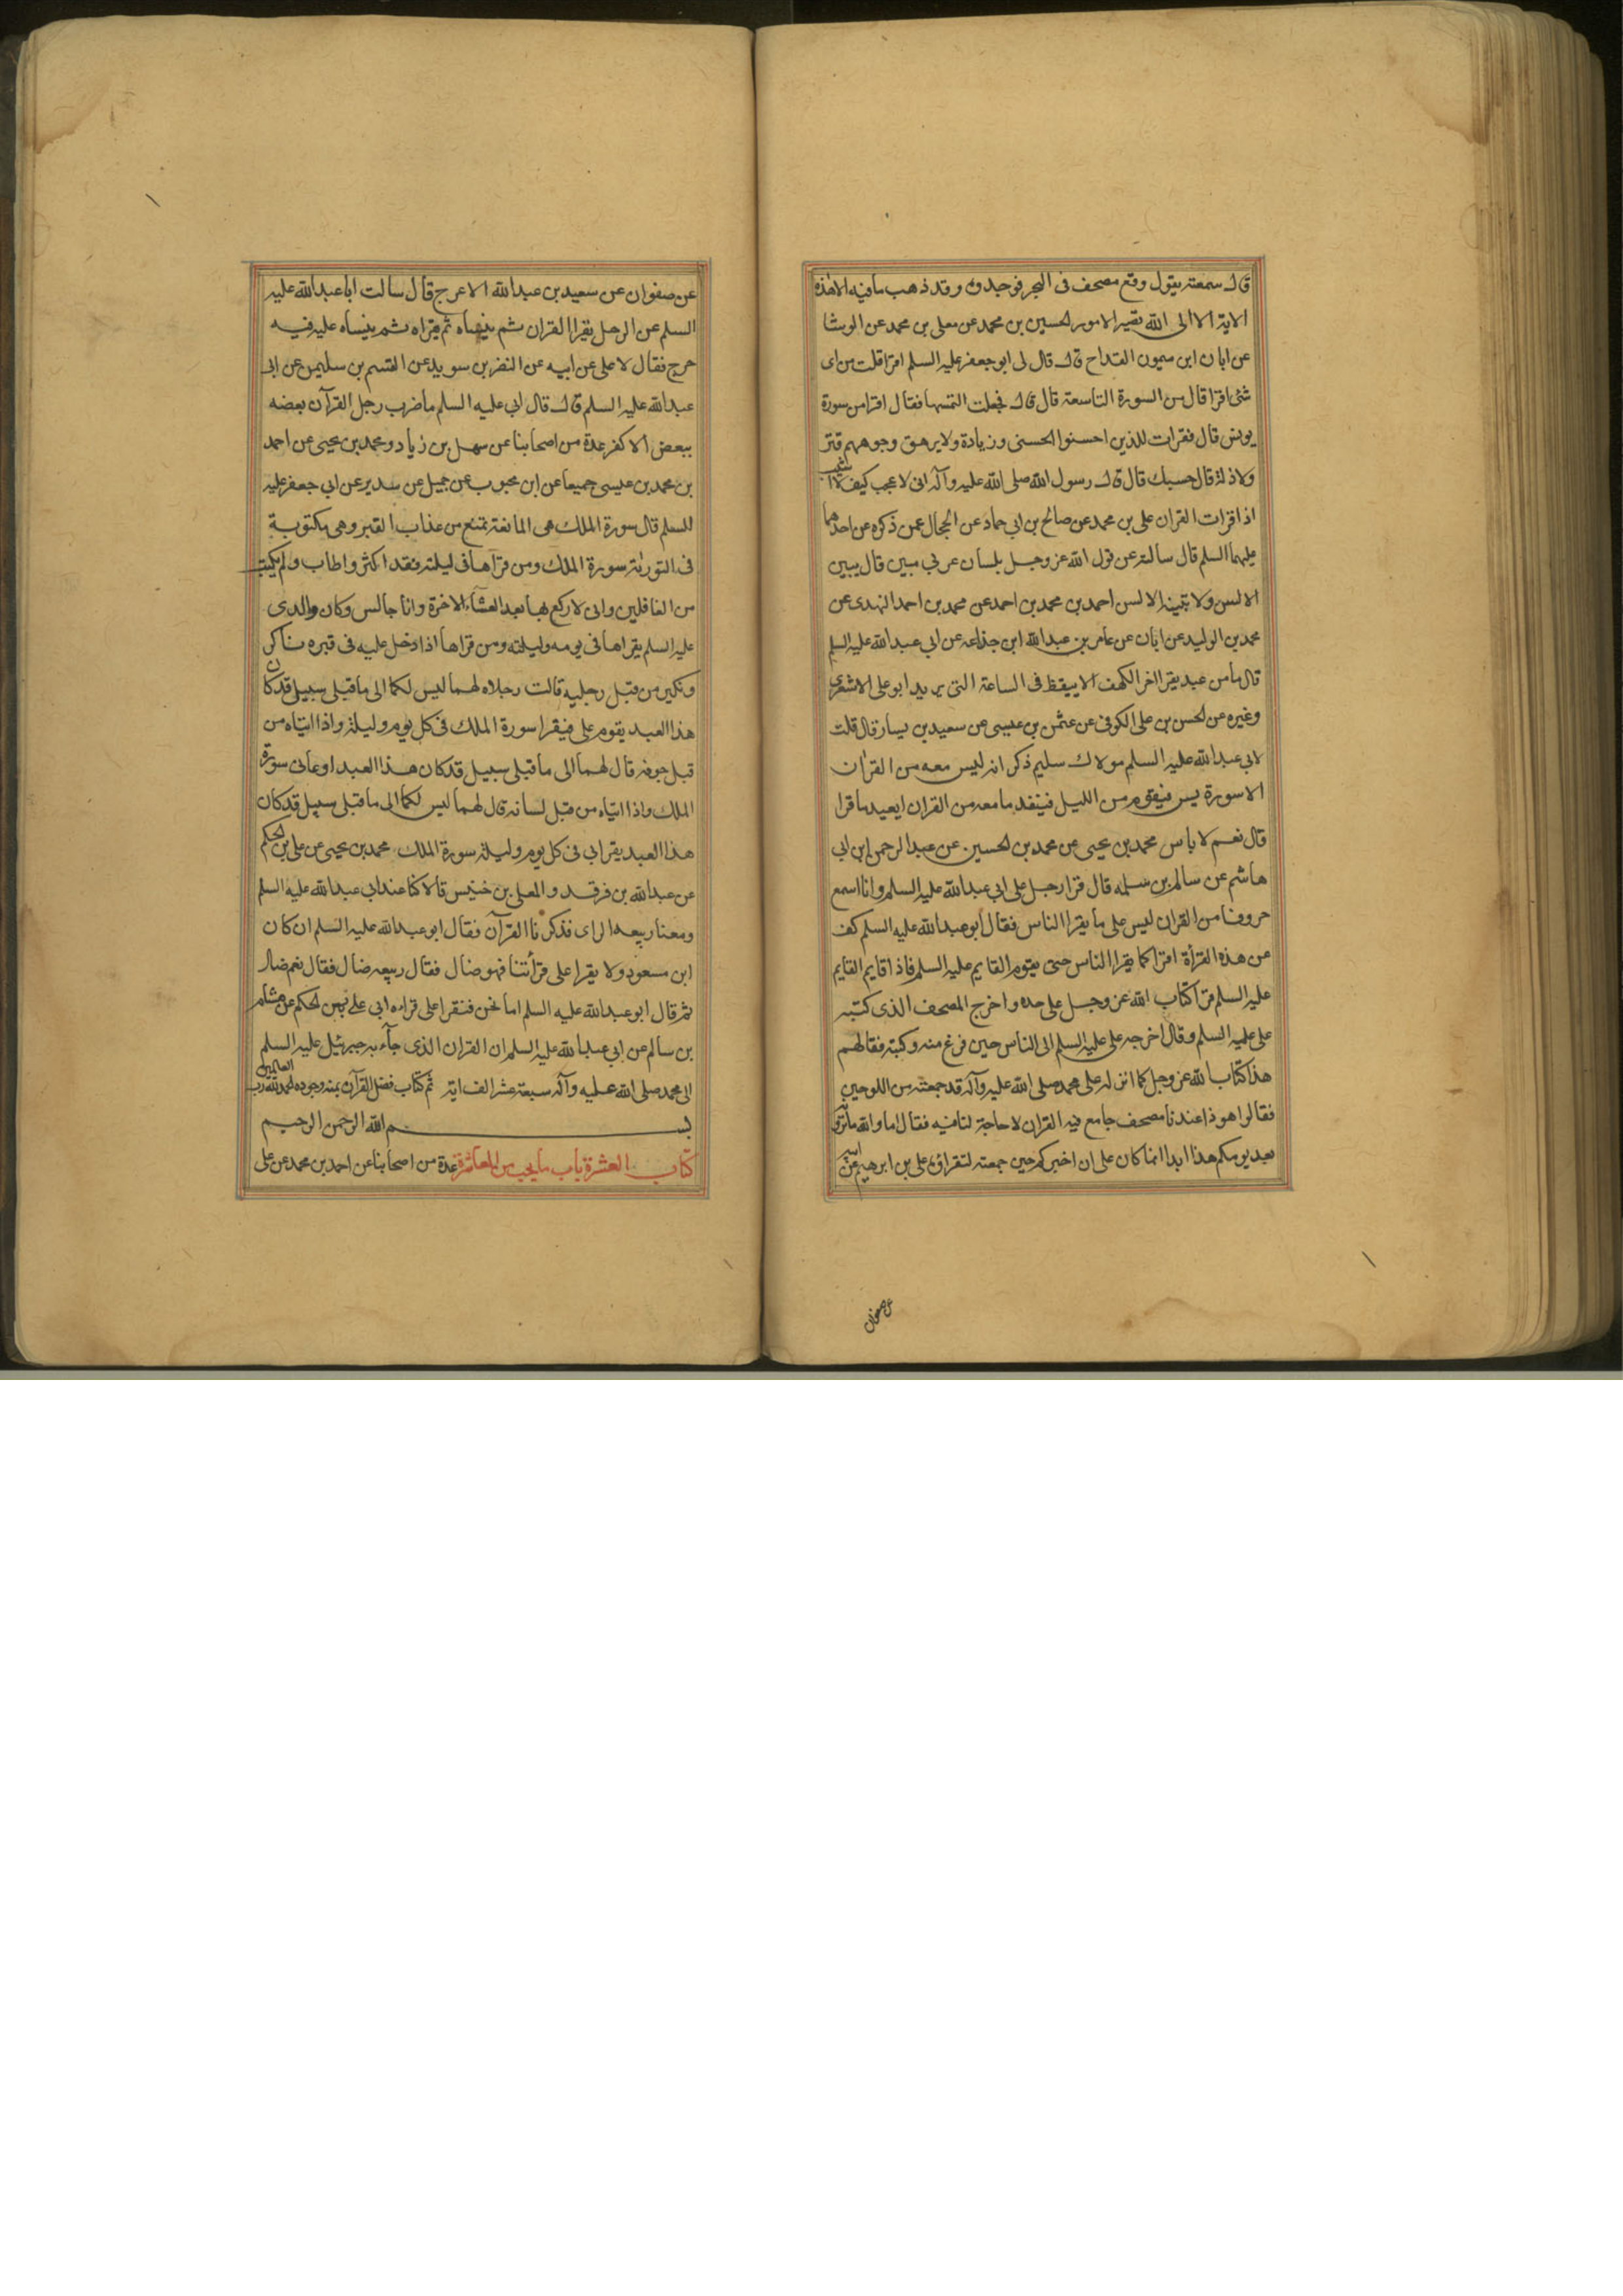 قال سمعته يقول وقع مصحف فى البحر فوجدوه وقد ذهب ما فيه الا هذه
الاية الا الى الله تصير الامور الحسين بن محمد عن معلى بن محمد عن الوشا
عن ابان ابن ميمون القداح قال قال لى ابو جعفر عليه السلم اقرا قلت من اى
شئ اقرا قال من السورة التاسعة قال قال فجعلت التمسها فقال اقرا من سورة
يونس قال فقرات للذين احسنوا الحسنى وزيادة ولا يرهق وجوههم قتر
ولا ذلة قال حسبك قال قال رسول الله صلى الله عليه وآله انى لاعجب كيف لا اشيب
اذا قرات القران على بن محمد عن صالح بن ابى حماد عن الحجال عمن ذكره عن احدهما
عليهما السلم قال سالته عن قول الله عز وجل بلسان عربي مبين قال يبين
الالسن ولا تبينه الالسن احمد بن محمد بن احمد عن محمد بن احمد النهدى عن
محمد بن الوليد عن ابان عن عامر بن عبد الله ابن جذاعه عن ابي عبد الله عليه السلم
قال ما من عبد يقرا اخر الكهف الا ييقظ فى الساعة التى يريد ابو على الاشعرى
وغيره عن الحسن بن على الكوفى عن عثمن بن عيسى عن سعيد بن يسار قال قلت
لابى عبد الله عليه السلم مولاك سليم ذكر انه ليس معه من القران
الا سورة يس فيقوم من الليل فينفد ما معه من القران ايعيد ما قرا
قال نعم لا باس محمد بن يحيى عن محمد بن الحسين عن عبد الرحمن ابن ابى
هاشم عن سالم بن سلمه قال قرا رجل على ابى عبد الله عليه السلم وانا اسمع
حروفا من القران ليس على ما يقرا الناس فقال ابو عبد الله عليه السلم كف
عن هذه القرأة اقرا كما يقرا الناس حتى يقوم القايم عليه السلم فاذا قايم القايم
عليه السلم قرا كتاب الله عز وجل على حده واخرج المصحف الذى كتبه
على عليه السلم وقال اخرجه على عليه السلم الى الناس حين فرغ منه وكتبه فقال لهم
هذا كتاب الله عز وجل كما انزله على محمد صلى الله عليه وآله قد جمعته من اللوحين
فقالوا هوذا عندنا مصحف جامع فيه القران لا حاجة لنا فيه فقال اما والله ما ترونه
بعد يومكم هذا ابدا انما كان على ان اخبركم حين جمعته لتقراوه على بن ابرهيم عن ابيه
عن صفوان
عن صفوان عن سعيد بن عبد الله الاعرج قال سالت ابا عبد الله عليه
السلم عن الرجل يقرا القران ثم ينساه ثم يقراه ثم ينساه عليه فيه
حرج فقال لا على عن ابيه عن النضر بن سويد عن القسم بن سليمن عن ابى
عبد الله عليه السلم قال قال ابى عليه السلم ما ضرب رجل القرآن بعضه
ببعض الا كفر عدة من اصحابنا عن سهل بن زياد ومحمد بن يحيى عن احمد
بن محمد بن عيسى جميعا عن ابن محبوب عن جميل عن سدير عن ابى جعفر عليه
السلم قال سورة الملك هى المانعة تمنع من عذاب القبر وهى مكتوبة
فى التورية سورة الملك ومن قرآها فى ليلته فقد اكثر واطاب ولم يكتب
من الغافلين وانى لاركع بها بعد العشاء الاخرة وانا جالس وكان والدى
عليه السلم يقراها فى يومه وليلته ومن قراها اذا دخل عليه فى قبره ناكر
ونكير من قبل رجليه قالت رجلاه لهما ليس لكما الى ما قبلى سبيل قد كان
هذا العبد يقوم على فيقرا سورة الملك فى كل يوم وليلة واذا اتياه من
قبل جوفه قال لهما الى ما قبلى سبيل قد كان هذا العبد اوعانى سورة
الملك واذا اتياه من قبل لسانه قال لهما ليس لكما الى ما قبلى سبيل قد كان
هذا العبد يقرا بى فى كل يوم وليلة سورة الملك محمد بن يحيى عن على بن الحكم
عن عبد الله بن فرقد والمعلى بن خنيس قالا كنا عند ابى عبد الله عليه السلم
ومعنا ربيعه الراى فذكرنا القرآن فقال ابو عبد الله عليه السلم ان كان
ابن مسعود ولا يقرا على قرأتنا فهو ضال فقال ربيعه ضال فقال نعم ضال
ثم قال ابو عبد الله عليه السلم اما نحن فنقرا على قراءه ابى على بن الحكم عن هشام
بن سالم عن ابى عبد الله عليه السلم ان القران الذى جآء به جبرئيل عليه السلم
الى محمد صلى الله عليه وآله سبعة عشر الف اية تم كتاب فضل القرآن بمنه وجوده الحمد لله رب العالمين
بسم الله الرحمن الرحيم
كتاب العشرة باب ما يجب من المعاشرة عدة من اصحابنا عن احمد بن محمد عن على